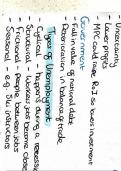 - Uncertainty
- Lower profits
- MPC could raise RoI so lower investment
Government
- Fall in value of national debt
- Deterioration in balance of trade
Types of Unemployment
Cyclical - happens during a recession
Structural - become
Frictional - people between jobs
Seasonal - e.g. ski instructors